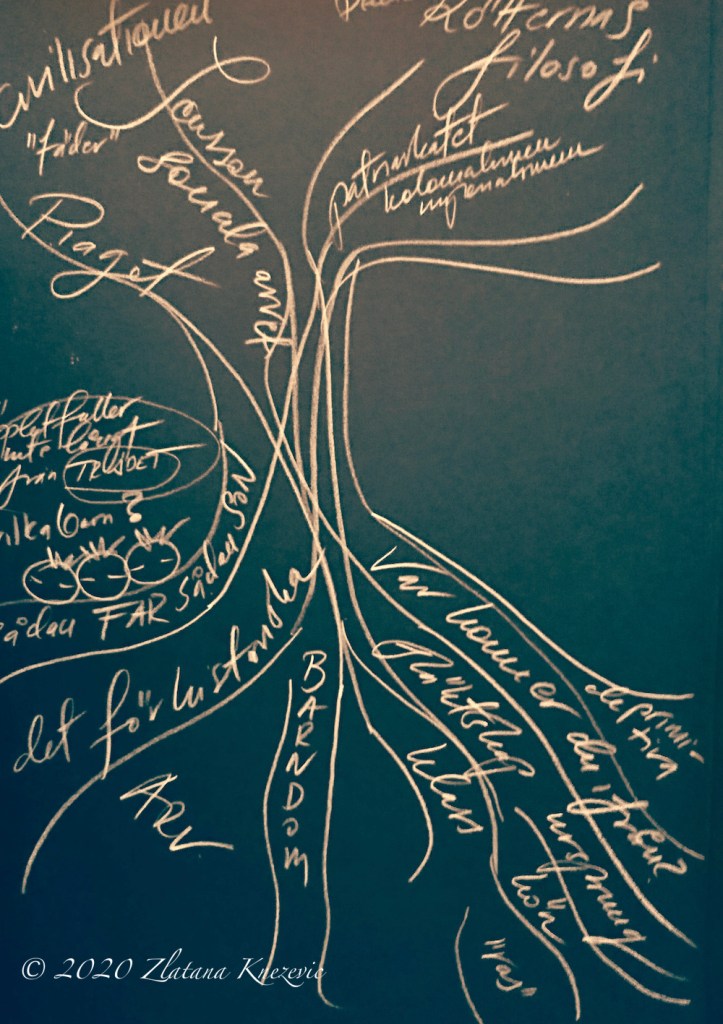 civilisationen
"fäder"
Rötternas
filosofi
Sociala arvet
patriarkatet
kolonialismen
imperialismen
Piaget
äpplet faller
inte långt
från TRÄDET
vilka barn?
sådan FAR sådan
det förhistoriska
ARV
BARNDOM
Var kommer du ifrån?
de primi-
tiva
Släktskap
klass
ursprung
kön
"ras"
© 2020 Zlatana Knezevic